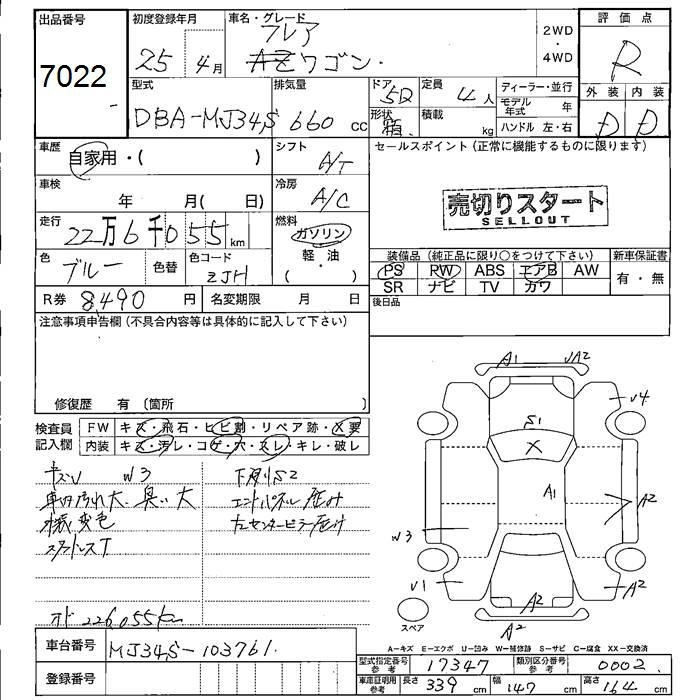 出品番号
7022
初度登録年月
25 4月
車名・グレード
フレア
ワゴン
2WD
・
4WD
評価点
R
外装 内装
D D
型式
DBA-MJ34S
排気量
660 cc
ドア
5D
形状
箱
定員
4人
積載
kg
ディーラー・並行
モデル年式 年
ハンドル 左・右
車歴
自家用・( )
シフト
A/T
セールスポイント(正常に機能するものに限ります)
車検
年 月( 日)
冷房
A/C
売切りスタート
SELLOUT
走行
22万6千055km
燃料
ガソリン
・
軽・油
( )
色
ブルー
色替
色コード
ZJH
装備品(純正品に限り○をつけて下さい)
新車保証書
PS RW ABS エアB AW
有・無
SR ナビ TV カワ
R券 8,490 円
名変期限 月 日
後日品
注意事項申告欄(不具合内容等は具体的に記入して下さい)
修復歴 有 〔箇所 〕
検査員
記入欄
FW キズ・飛石・ヒビ割・リペア跡・X要
内装 キズ・汚レ・コゲ・穴・スレ・キレ・破レ
キズU W3
下廻りS2
車内汚れ大、臭い大
エンドパネル歪み
左センターピラー歪み
スタットレスT
オド 226,055km
A1 UA2
U4
S1
X
A1
A2
W3
U1
A2
A2
A2
スペア
A-キズ E-エクボ U-凹み W-補修跡 S-サビ C-腐食 XX-交換済
車台番号
MJ34S-103761
型式指定番号
参考
17347
類別区分番号
参考
0002
登録番号
車庫証明用
参考
長さ 339 cm
幅 147 cm
高さ 164 cm